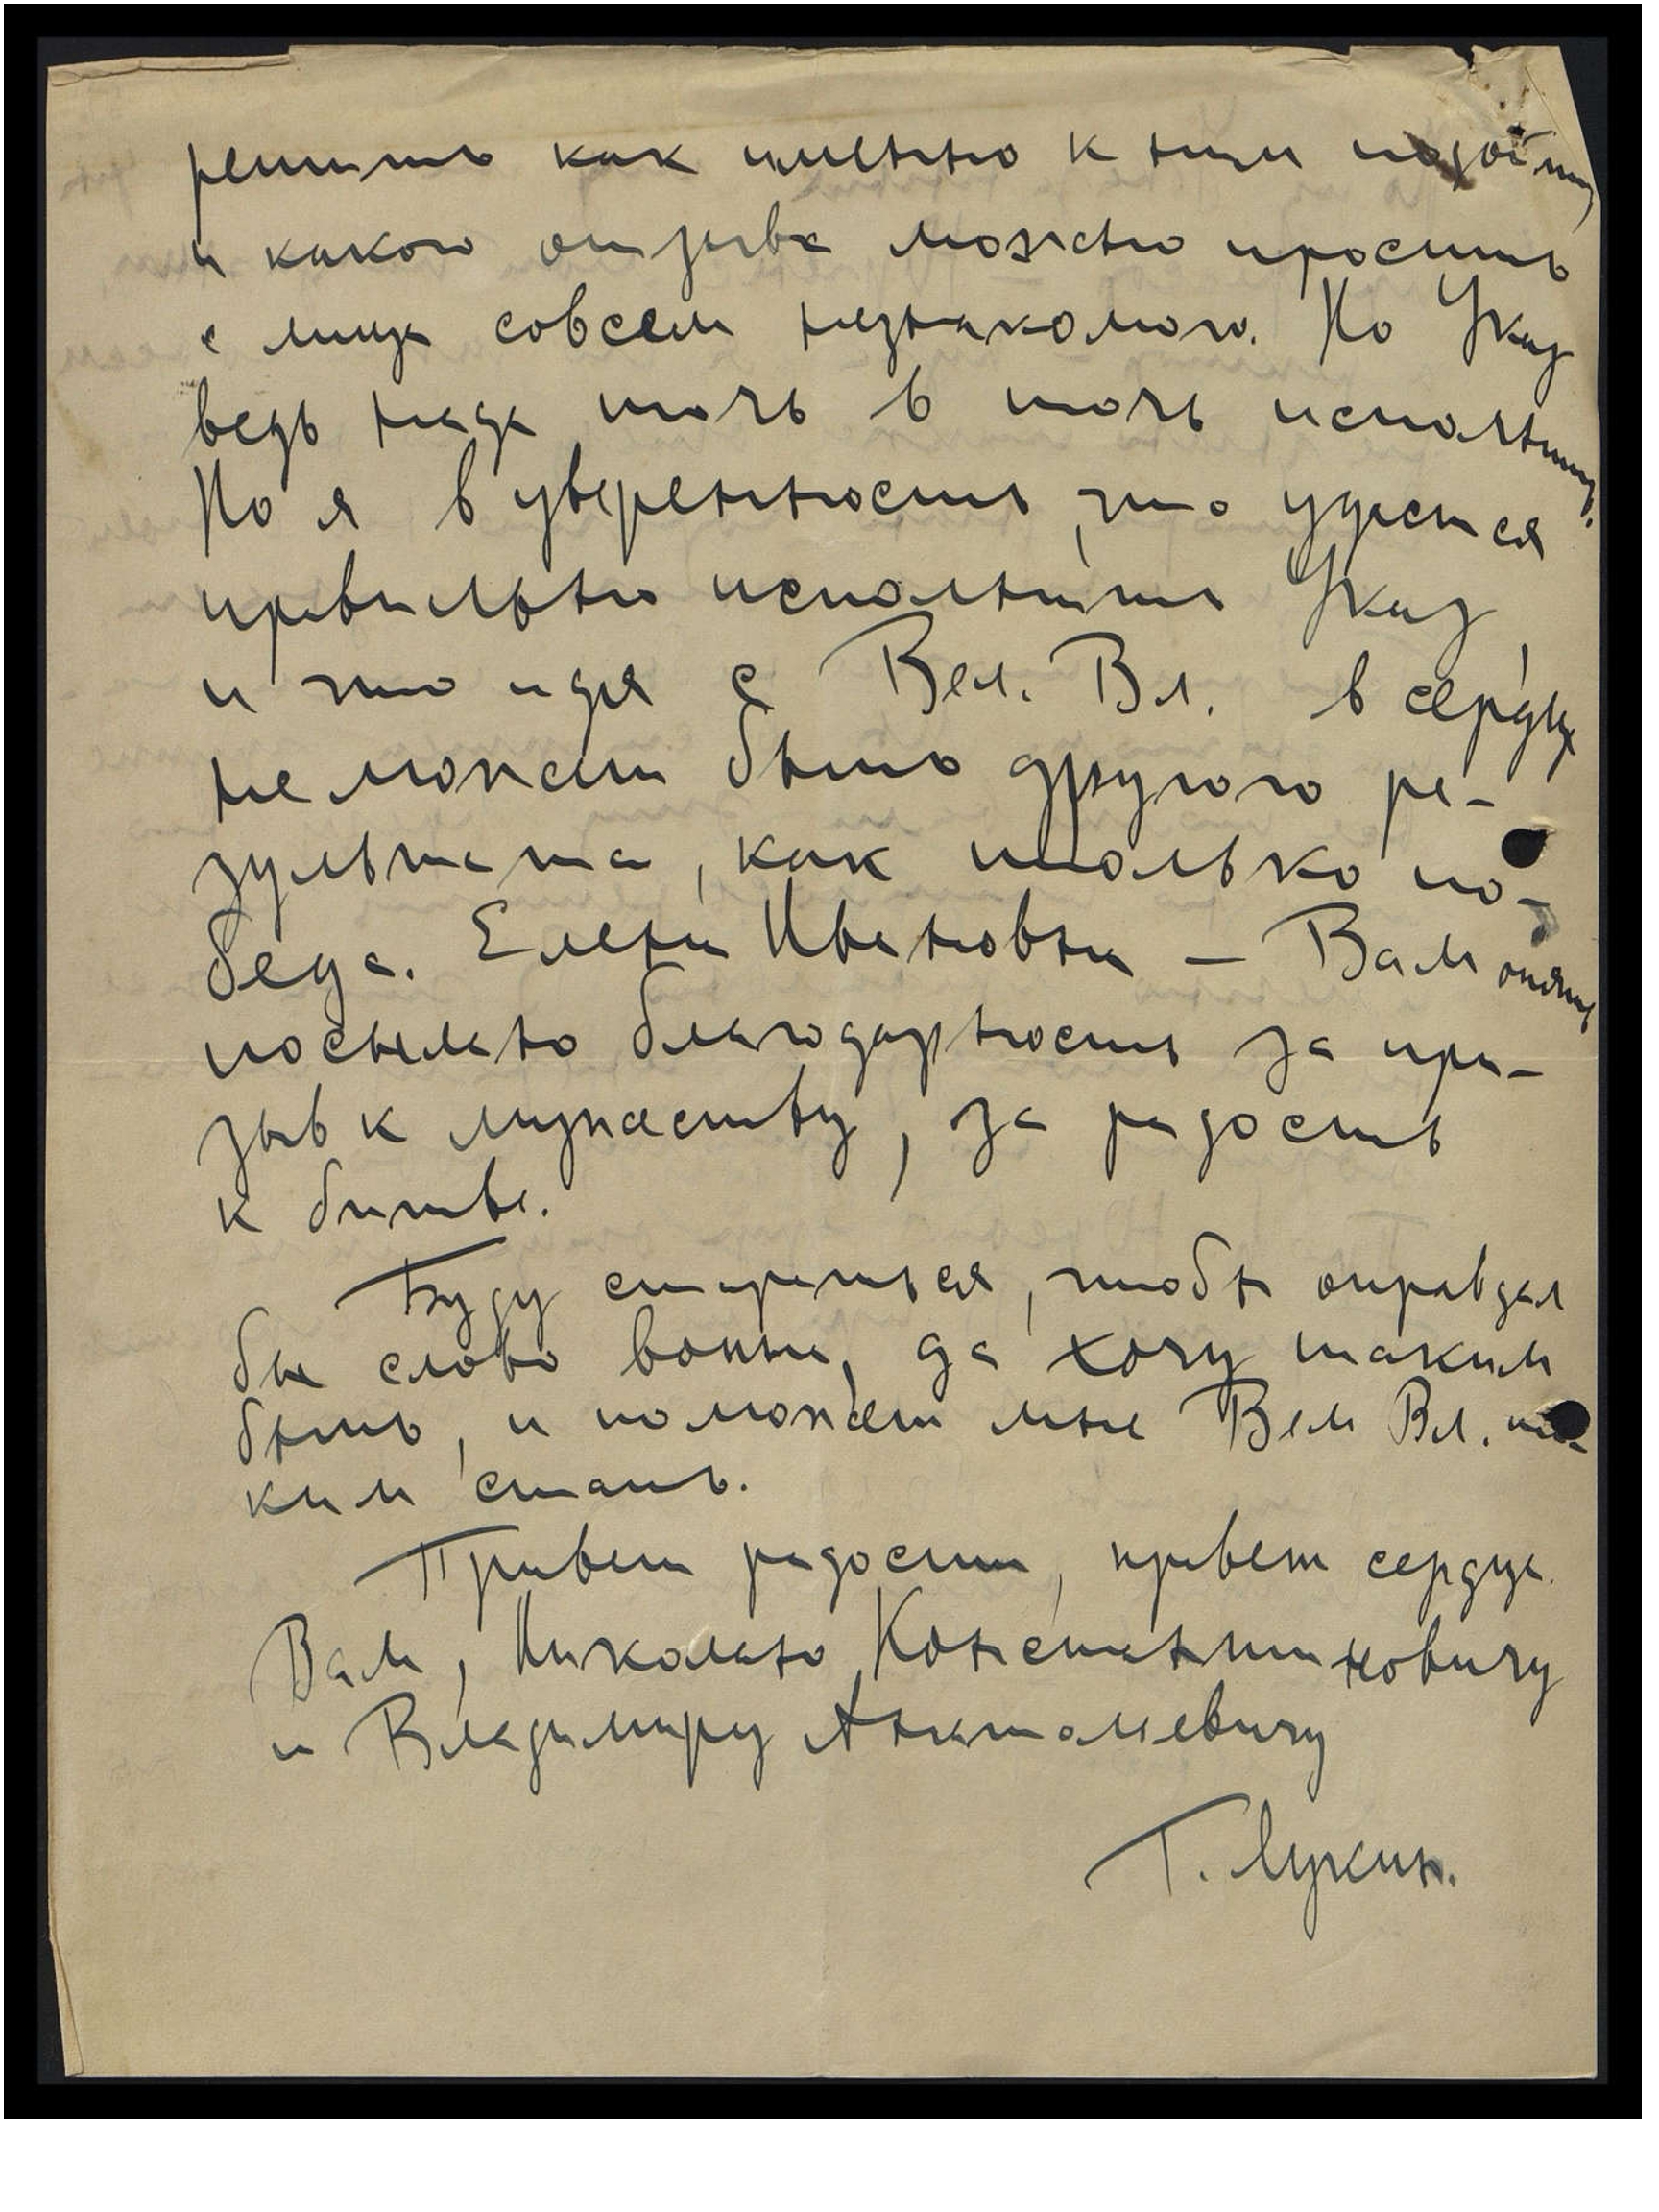 решить как именно к ним подойти,
и какого отзыва можно просить
с лица совсем незнакомого. Но Указ
ведь надо точь в точь исполнить.
Но я в уверенности, что удастся
правильно исполнить Указ,
и что идя с Вел. Вл. в сердце
не может быть другого ре-
зультата, как только по-
беда. Елена Ивановна – Вам опять
посылаю благодарность за при-
зыв к мужеству, за радость
к битве.
Буду стараться, чтобы оправдал
бы слово воина, да хочу таким
быть, и поможет мне Вел Вл. та-
ким стать.
Привет радости, привет сердца.
Вам, Николаю Константиновичу
и Владимиру Анатолиевичу
Г. Лукин.